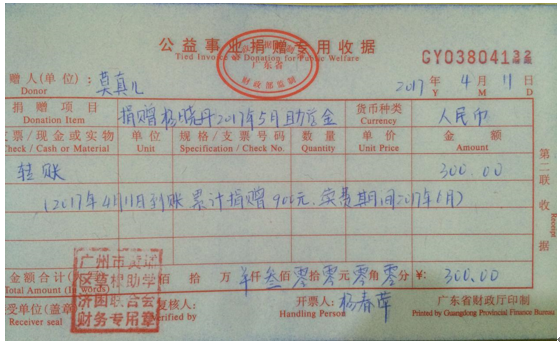 公益事业捐赠专用收据
Tied Invoice of Donation for Public Welfare
广东省
财政部监制
GY0380412
赠人(单位): 莫真儿 2017 年 4 月 11 日
Donor Y M D
捐赠项目 捐赠杨晓丹2017年5月助学金 货币种类 人民币
Donation Item Currency
票/现金或实物 单位 规格/支票号码 数量 单价 金额
Check / Cash or Material Unit Specification / Check No. Quantity Unit Price Amount
转账 300.00
(2017年4月11日到账 累计捐赠900元, 6月)
第二联 收据
Receipt
金额合计( 佰 拾 万 仟叁佰零拾零元零角零分 ¥: 300.00
Total Amount (In Words)
广州市
助学
会
财务专用章
受单位(盖章) 复核人: 开票人: 杨春萍 广东省财政厅印制
Receiver seal Verified by Handling Person Printed by Guangdong Provincial Finance Bureau